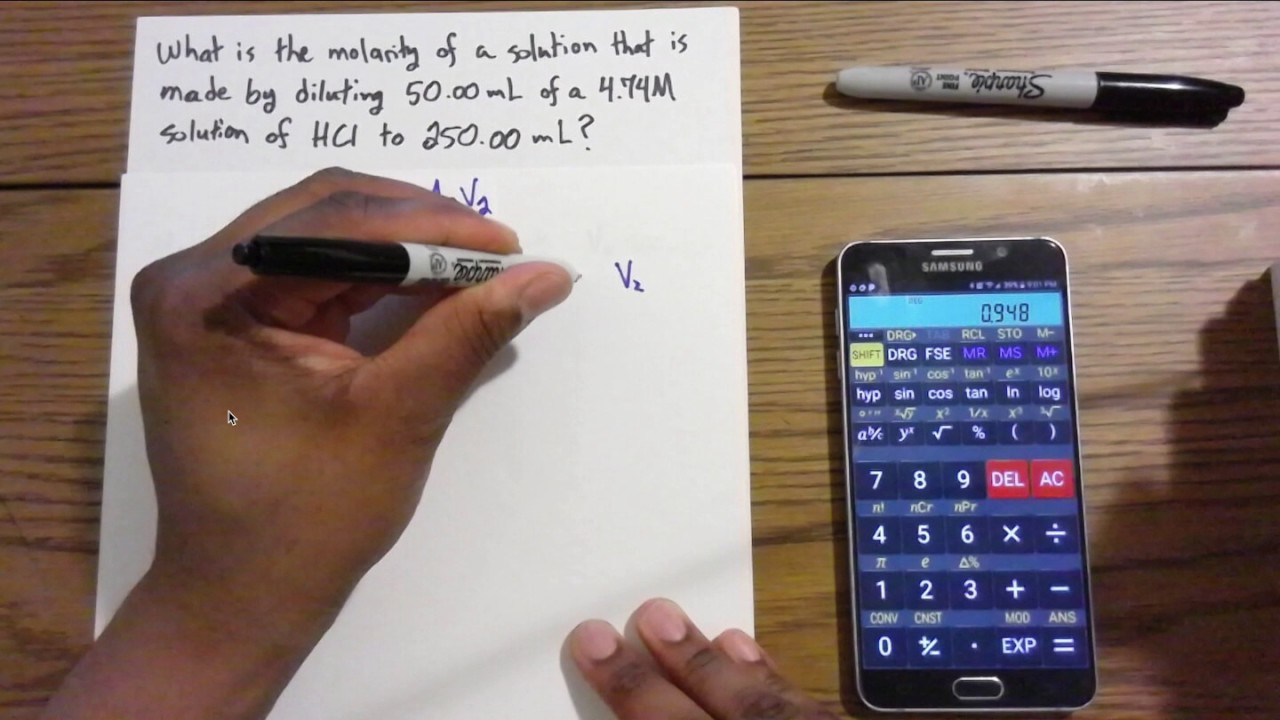 What is the molarity of a solution that is
made by diluting 50.00 mL of a 4.74M
solution of HCl to 250.00 mL?
V₂
V₂
Sharpie
FINE POINT
AP
Sharpie
AP
SAMSUNG
9:01 PM
DEG
0.948
••• DRG▸ TAB RCL STO M−
SHIFT DRG FSE MR MS M+
hyp⁻¹ sin⁻¹ cos⁻¹ tan⁻¹ eˣ 10ˣ
hyp sin cos tan ln log
o ' " ˣ√y x² 1/x x³ ³√
aᵇ/c yˣ √ % ( )
7 8 9 DEL AC
n! nCr nPr
4 5 6 × ÷
π e Δ%
1 2 3 + −
CONV CNST MOD ANS
0 +/− · EXP =